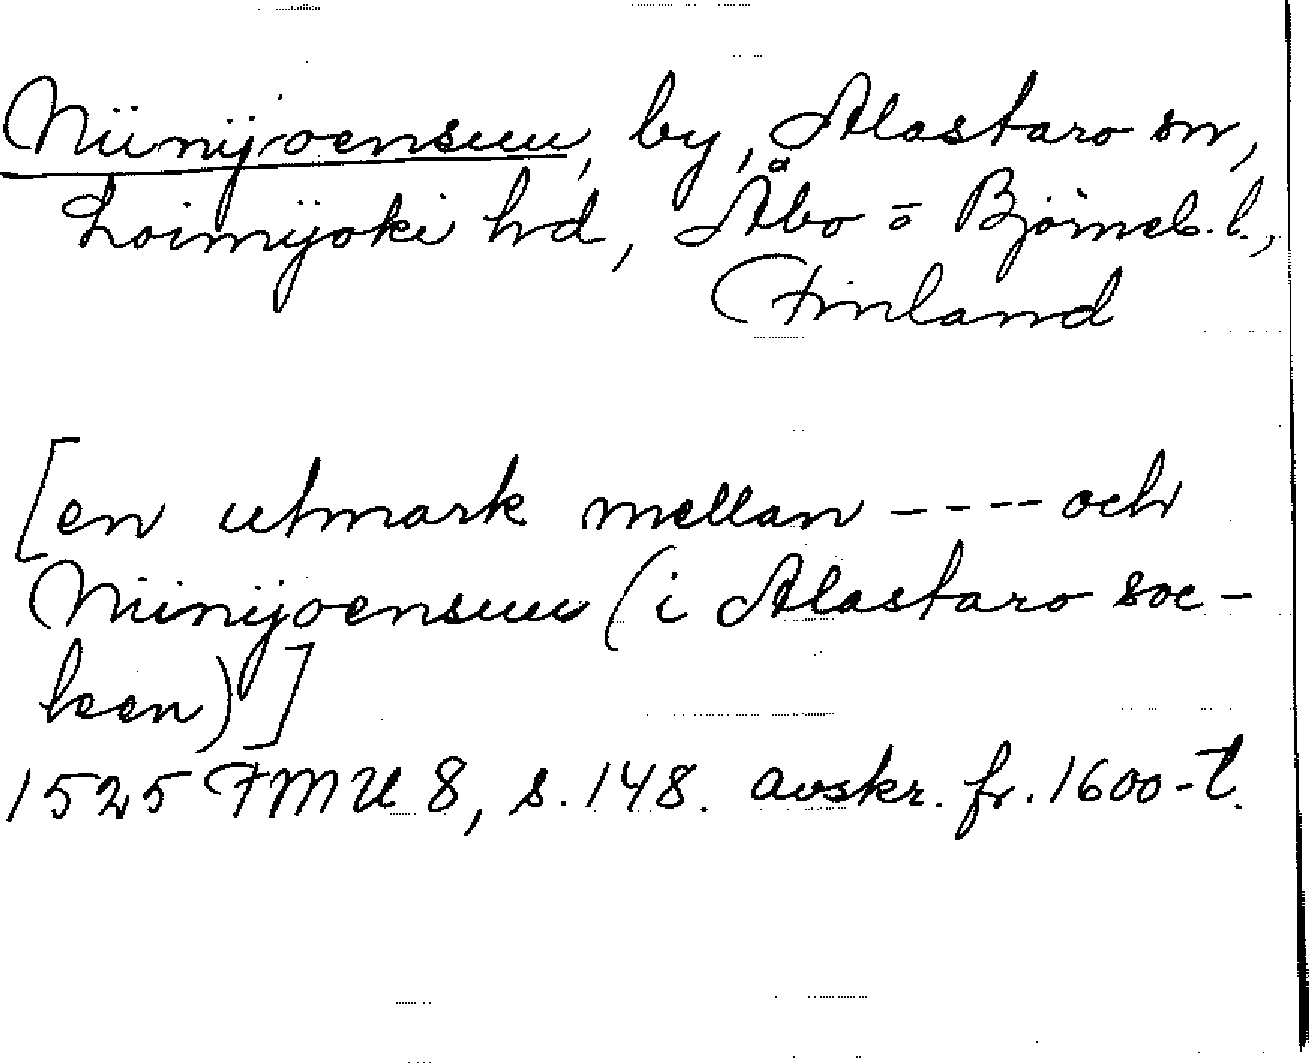 Niinijoensuu, by, Alastaro sn,
Loimijoki hd, Åbo o Björneb. l.,
Finland
[en utmark mellan ---- och
Niinijoensuu (i Alastaro soc-
ken)]
1525 FMU 8, s. 148. avskr. fr. 1600-t.